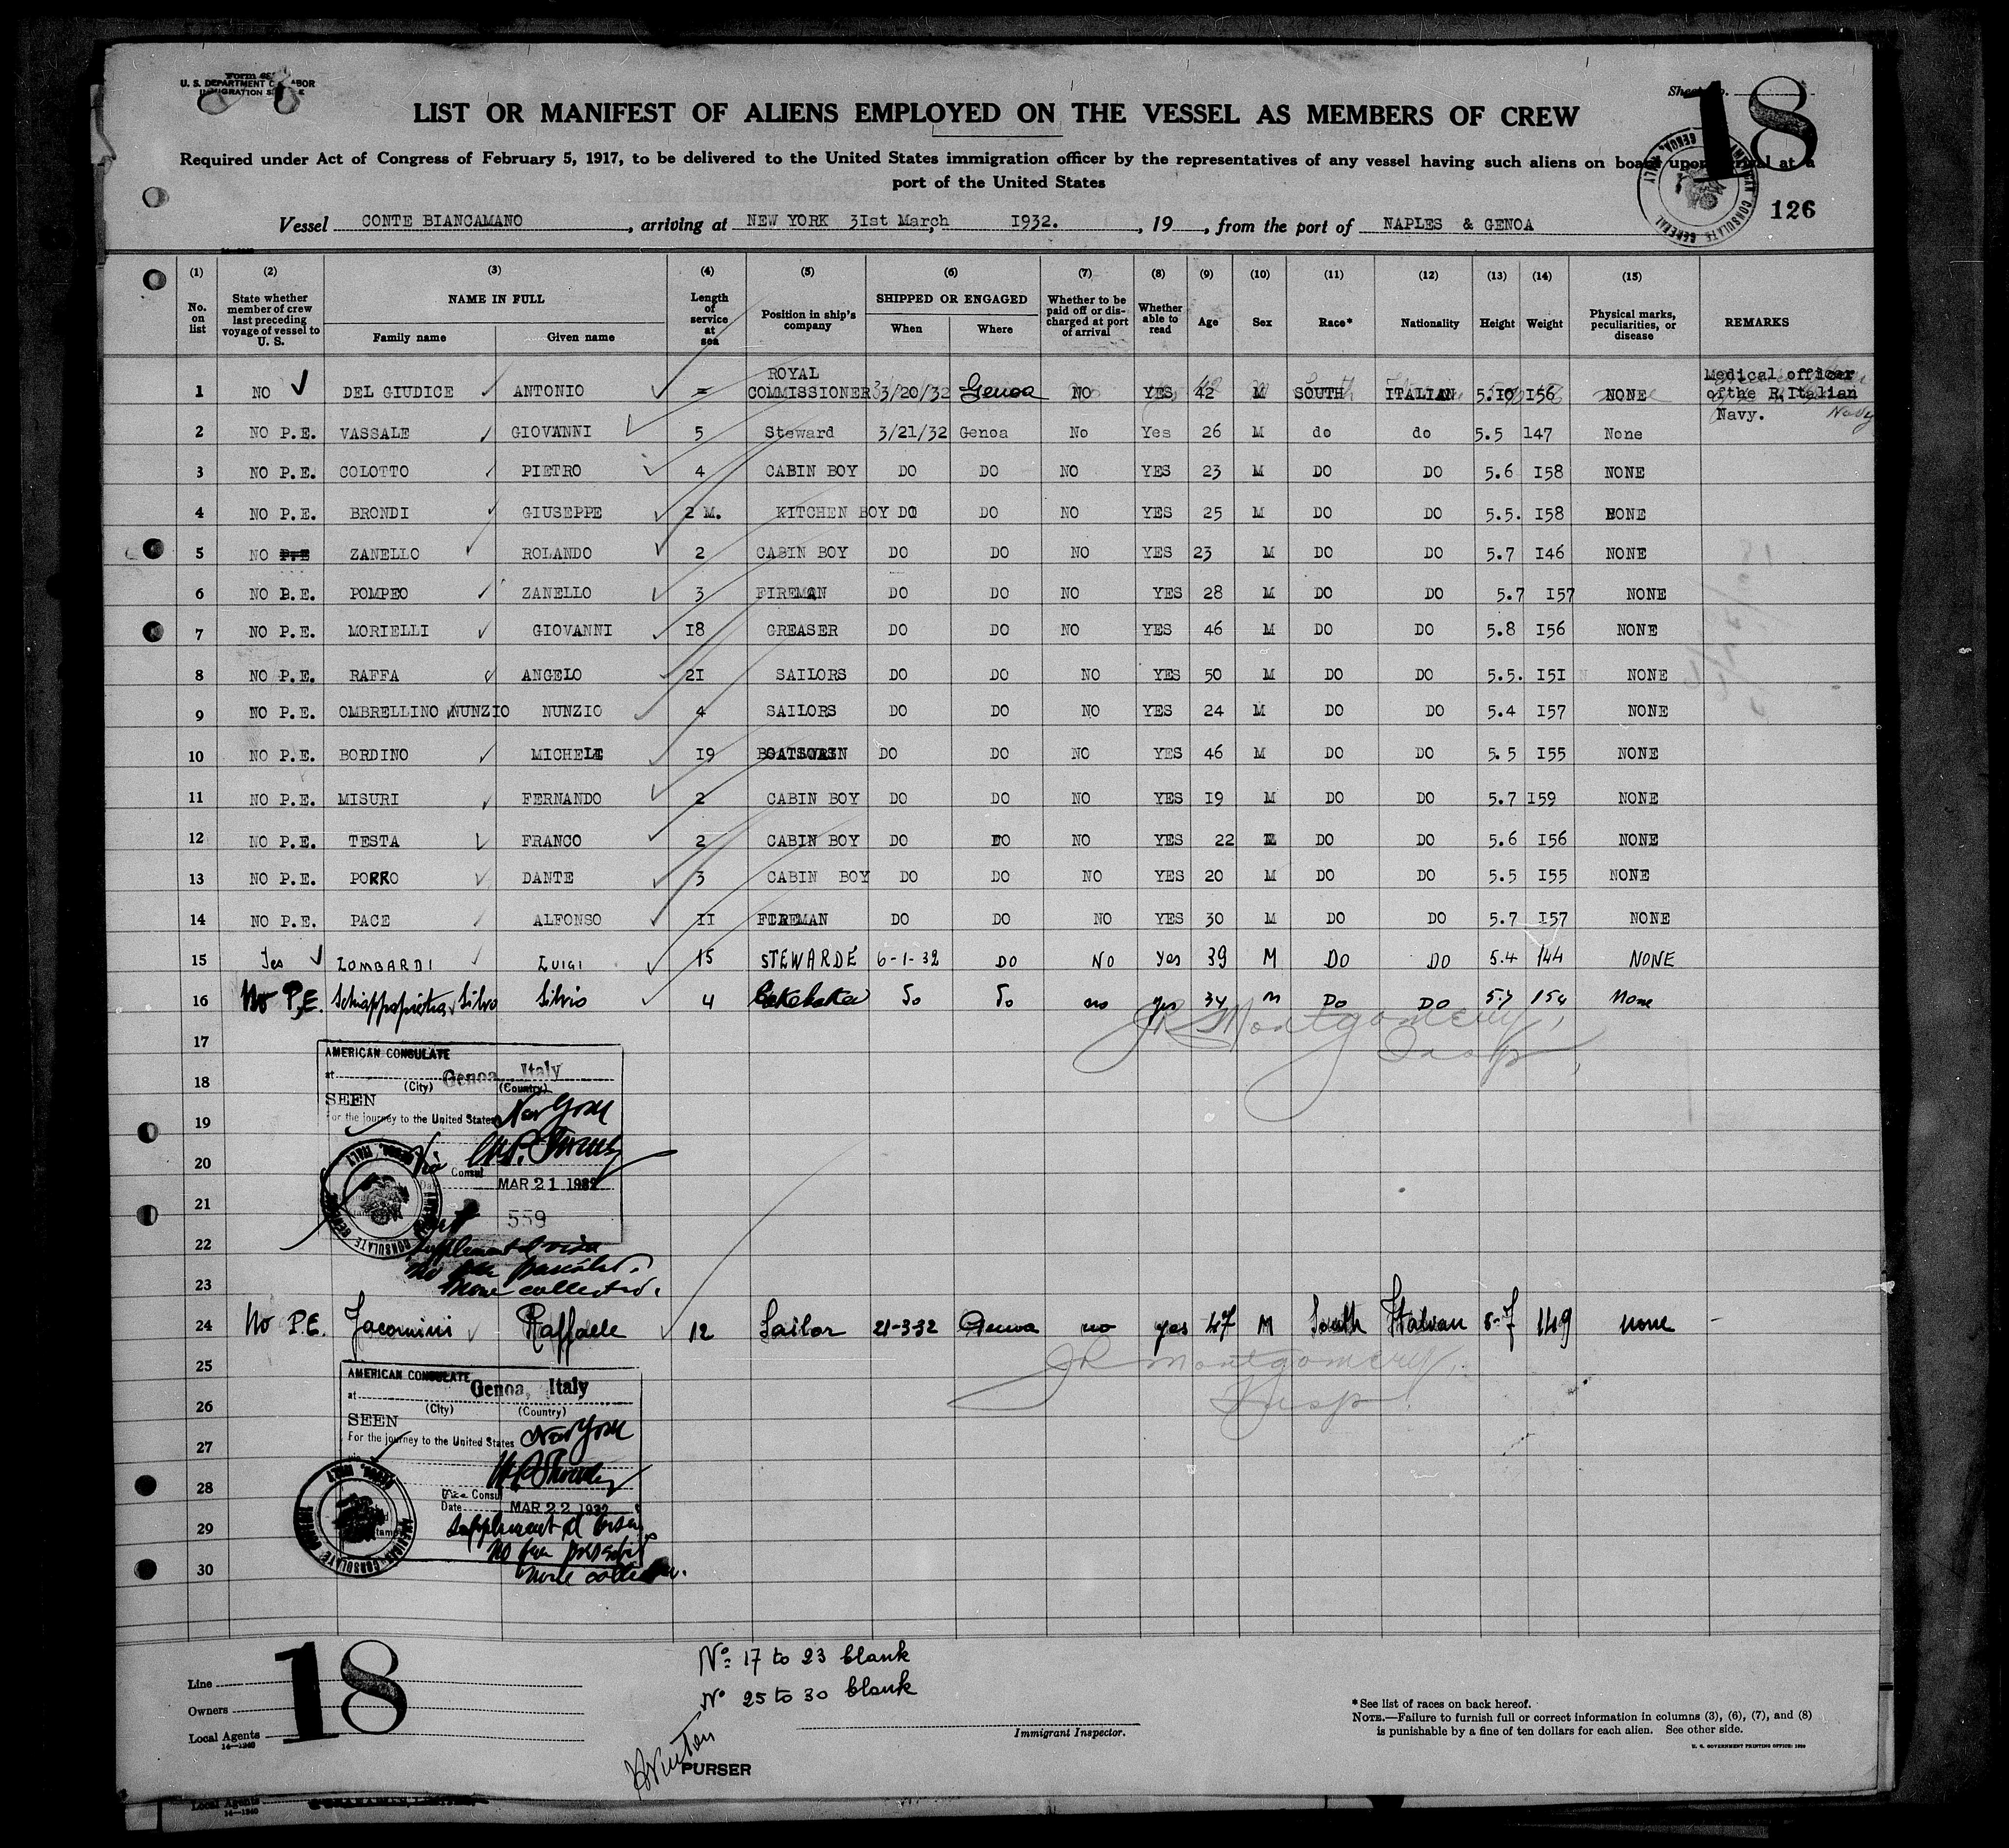 U. S. DEPARTMENT OF LABOR
IMMIGRATION
Sheet No.
18
LIST OR MANIFEST OF ALIENS EMPLOYED ON THE VESSEL AS MEMBERS OF CREW
Required under Act of Congress of February 5, 1917, to be delivered to the United States immigration officer by the representatives of any vessel having such aliens on board upon arrival at a
port of the United States
126
Vessel CONTE BIANCAMANO, arriving at NEW YORK 31st March, 1932., 19, from the port of NAPLES & GENOA
(1) (2) (3) (4) (5) (6) (7) (8) (9) (10) (11) (12) (13) (14) (15)
No. on list State whether member of crew last preceding voyage of vessel to U. S. NAME IN FULL Family name Given name Length of service at sea Position in ship's company SHIPPED OR ENGAGED When Where Whether to be paid off or discharged at port of arrival Whether able to read Age Sex Race* Nationality Height Weight Physical marks, peculiarities, or disease REMARKS
1 NO DEL GIUDICE ANTONIO ROYAL COMMISSIONER 3/20/32 Genoa NO YES 42 M SOUTH ITALIAN 5.10 156 NONE Medical officer of the R.Italian Navy.
2 NO P.E. VASSALE GIOVANNI 5 Steward 3/21/32 Genoa No Yes 26 M do do 5.5 147 None
3 NO P.E. COLOTTO PIETRO 4 CABIN BOY DO DO NO YES 23 M DO DO 5.6 I58 NONE
4 NO P.E. BRONDI GIUSEPPE 2 M. KITCHEN BOY DO DO NO YES 25 M DO DO 5.5. I58 NONE
5 NO P.E ZANELLO ROLANDO 2 CABIN BOY DO DO NO YES 23 M DO DO 5.7 I46 NONE
6 NO P.E. POMPEO ZANELLO 3 FIREMAN DO DO NO YES 28 M DO DO 5.7 I57 NONE
7 NO P.E. MORIELLI GIOVANNI I8 GREASER DO DO NO YES 46 M DO DO 5.8 I56 NONE
8 NO P.E. RAFFA ANGELO 2I SAILORS DO DO NO YES 50 M DO DO 5.5. I5I NONE
9 NO P.E. OMBRELLINO NUNZIO NUNZIO 4 SAILORS DO DO NO YES 24 M DO DO 5.4 I57 NONE
10 NO P.E. BORDINO MICHELE I9 DO DO NO YES 46 M DO DO 5.5 I55 NONE
11 NO P.E. MISURI FERNANDO 2 CABIN BOY DO DO NO YES I9 M DO DO 5.7 I59 NONE
12 NO P.E. TESTA FRANCO 2 CABIN BOY DO DO NO YES 22 M DO DO 5.6 I56 NONE
13 NO P.E. PORRO DANTE 3 CABIN BOY DO DO NO YES 20 M DO DO 5.5 I55 NONE
14 NO P.E. PACE ALFONSO II FIREMAN DO DO NO YES 30 M DO DO 5.7 I57 NONE
15 Yes LOMBARDI LUIGI 15 STEWARDE 6-1-32 DO NO Yes 39 M DO DO 5.4 144 NONE
16 No P.E. Schiappapietra Silvio Silvio 4 Do Do no yes 34 M DO DO 5.7 154 None
JR Montgomery,
Insp.
17
18
19
20
21
22
23
AMERICAN CONSULATE
at Genoa, Italy
(City) (Country)
SEEN
For the journey to the United States New York
Vice Consul
MAR 21 1932
559
AMERICAN CONSULATE GENERAL GENOA, ITALY
Supplemental visa
no fee prescribed.
None collected.
24 No P.E. Jacomini Raffaele 12 Sailor 21-3-32 Genoa no yes 47 M South Italian 5-7 149 none
JR Montgomery,
Insp.
25
26
27
28
29
30
AMERICAN CONSULATE
at Genoa, Italy
(City) (Country)
SEEN
For the journey to the United States New York
Vice Consul
Date MAR 22 1932
AMERICAN CONSULATE GENERAL GENOA, ITALY
Supplemental visa
no fee prescribed
None collected.
18
Line
Owners
Local Agents
14—1240
No 17 to 23 blank
No 25 to 30 blank
PURSER
Immigrant Inspector.
*See list of races on back hereof.
NOTE.—Failure to furnish full or correct information in columns (3), (6), (7), and (8)
is punishable by a fine of ten dollars for each alien. See other side.
U. S. GOVERNMENT PRINTING OFFICE: 1930
Local Agents
14—1240